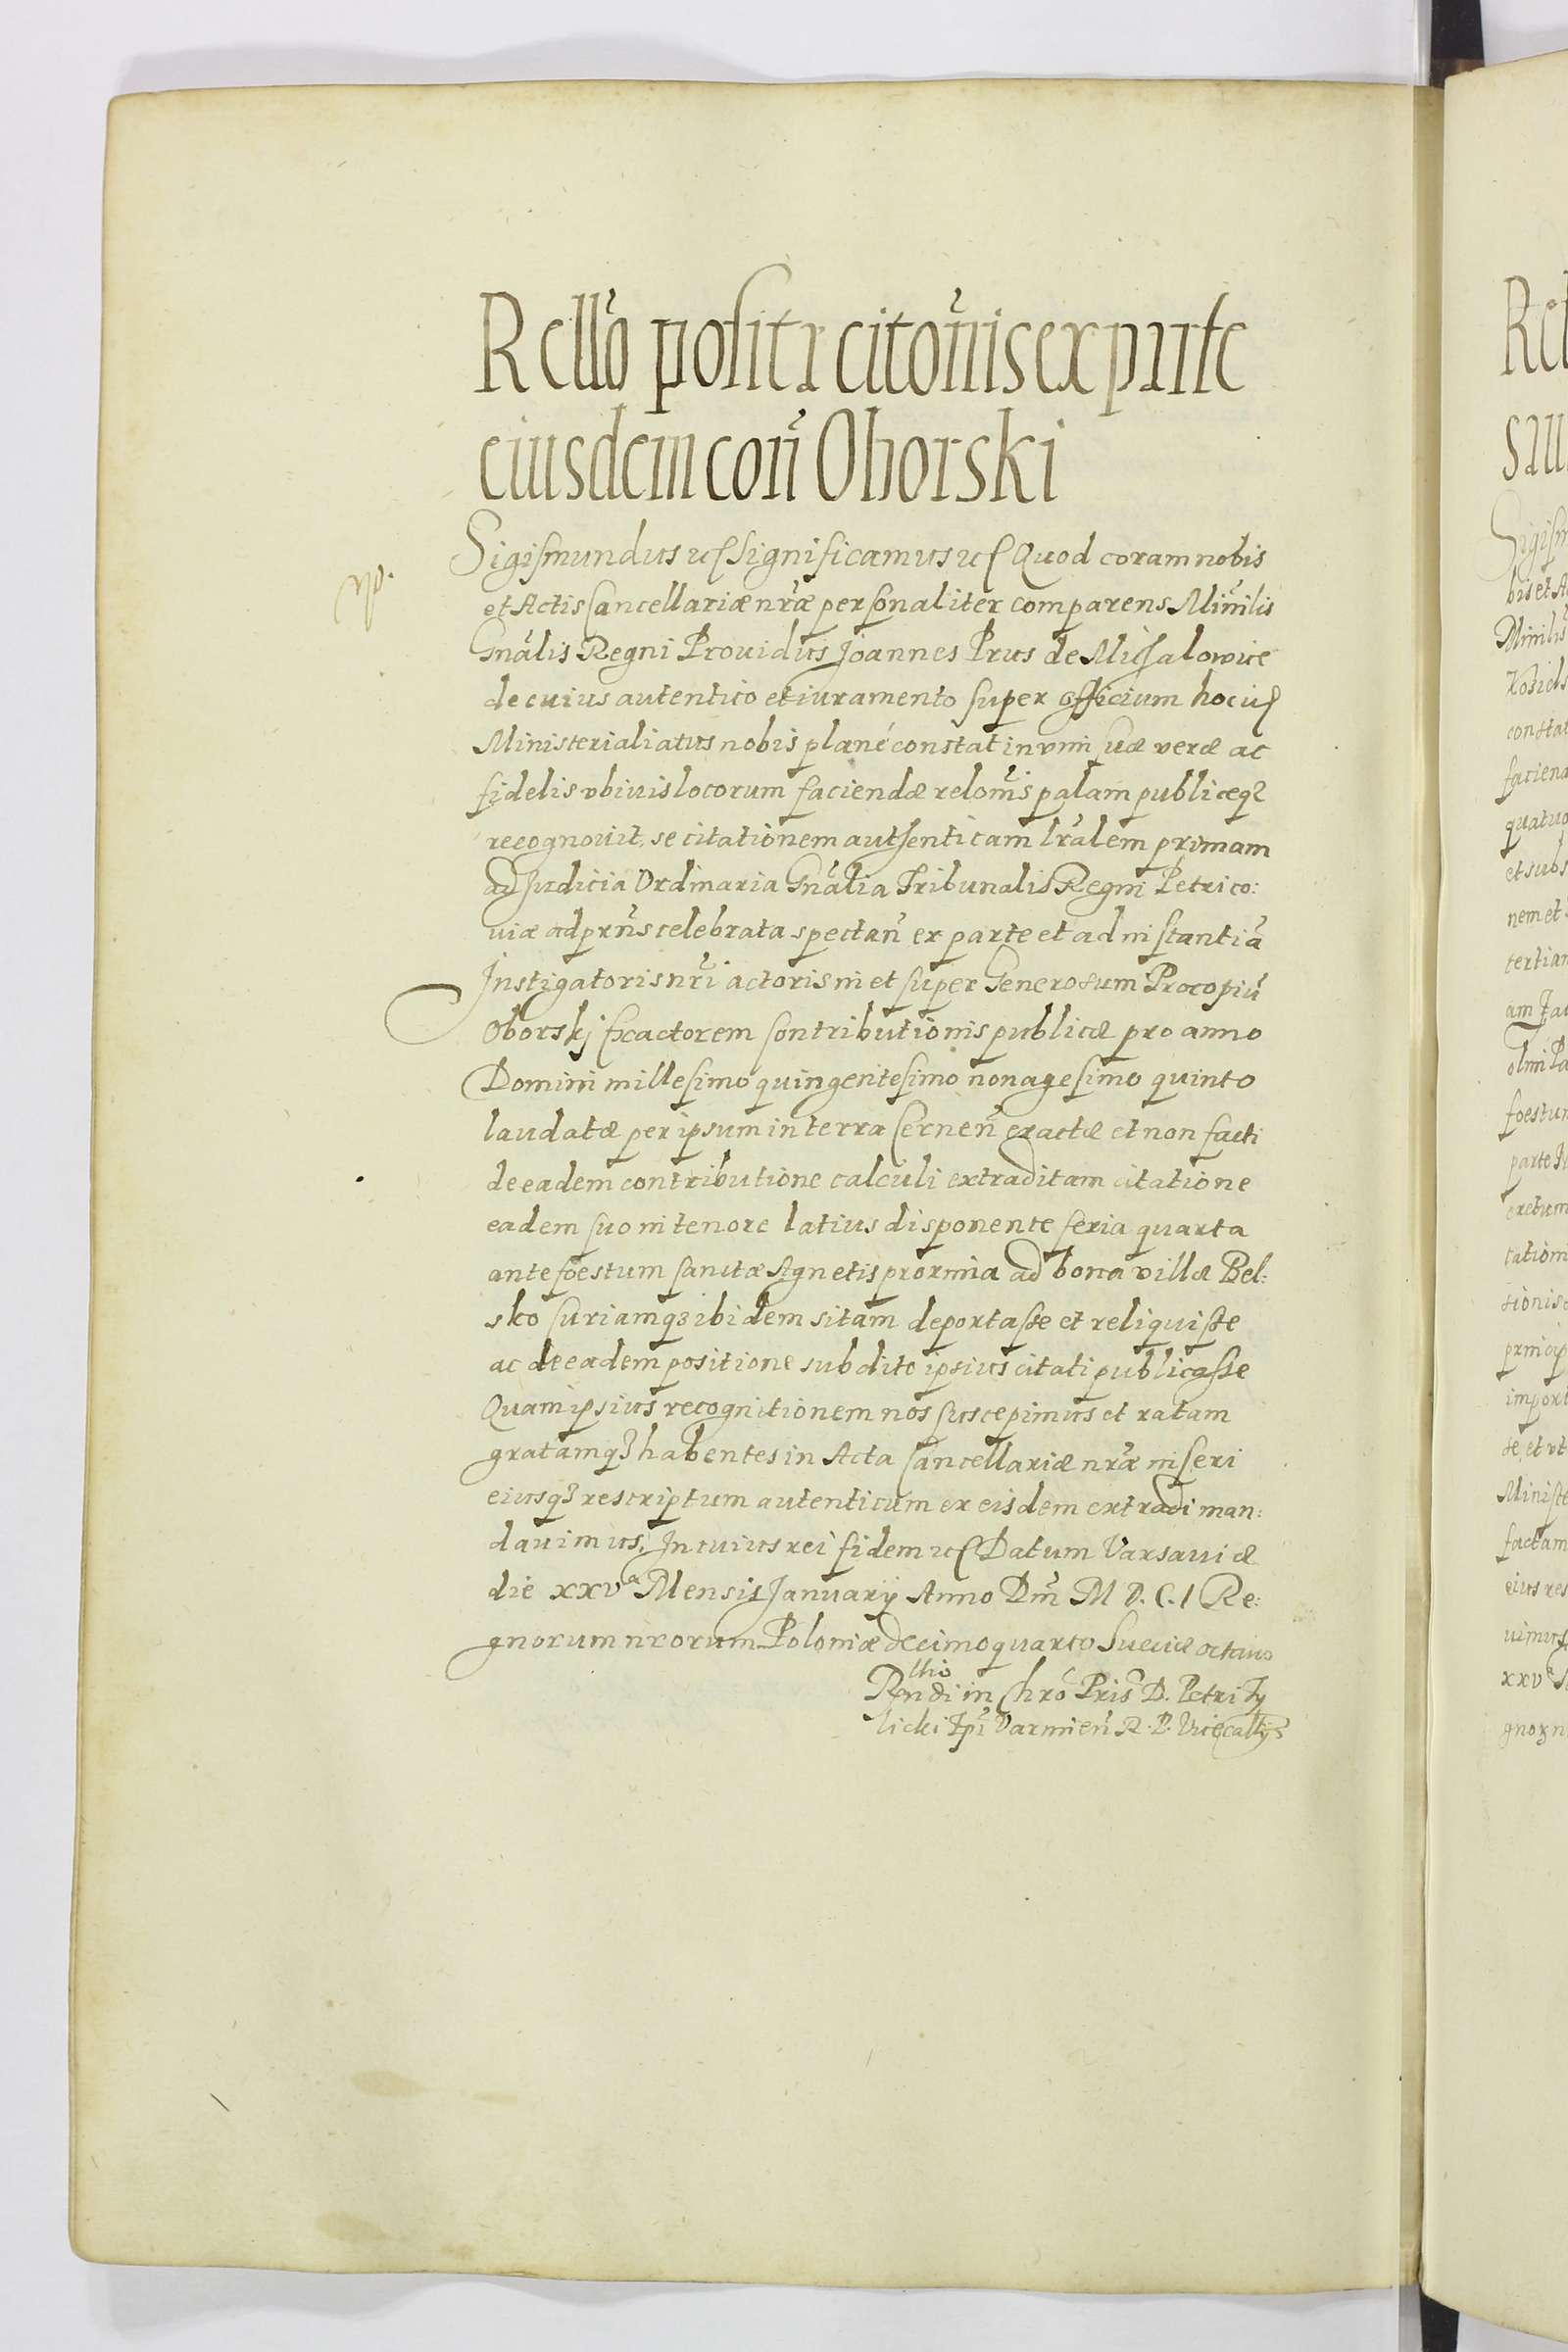 Rello posita citonis ex parte
eiusdem con Oborski
Sigismundus etc Significamus etc Quod coram nobis
et Actis Cancellariæ nræ personaliter comparens Minilis
Gnalis Regni Prouidus Joannes Prus de Michalowice
de cuius autentico et iuramento super officium hocius
Ministerialiatus nobis plané constat in vim suæ veræ ac
fidelis vbiuis locorum faciendæ relonis palam publiceq3
recognouit, se citationem authenticam lralem primam
ad Judicia Ordinaria Gnalia Tribunalis Regni Petrico:
uiæ ad prns celebrata spectan ex parte et ad instantiã
Instigatoris nri actoris in et super Generosum Procopiũ
Oborskj Exactorem Contributionis publicæ pro anno
Domini millesimo quingentesimo nonagesimo quinto
laudatæ per ipsum in terra Cernen exactæ et non facti
de eadem contributione calculi extraditam citatione
eadem suo in tenore latius disponente feria quarta
ante foestum Sanctæ Agnetis proxima ad bona villæ Bel:
sko Curiamq3 ibidem sitam deportasse et reliquisse
ac de eadem positione subdito ipsius citati publicasse
Quam ipsius recognitionem nos suscepimus et ratam
gratamq3 habentes in Acta Cancellariæ nræ inseri
eiusq3 rescriptum autenticum ex eisdem extradi man:
dauimus, In cuius rei fidem etc Datum Varsauiæ
die xxvᵃ Mensis Januarij Anno Dni M D. C. I Re:
gnorum nrorum Poloniæ decimoquarto Sueciæ octauo
Rello
Rendi in Chro Pris D. Petri Ty
licki Epi Varmien R. P. Vicecallrij